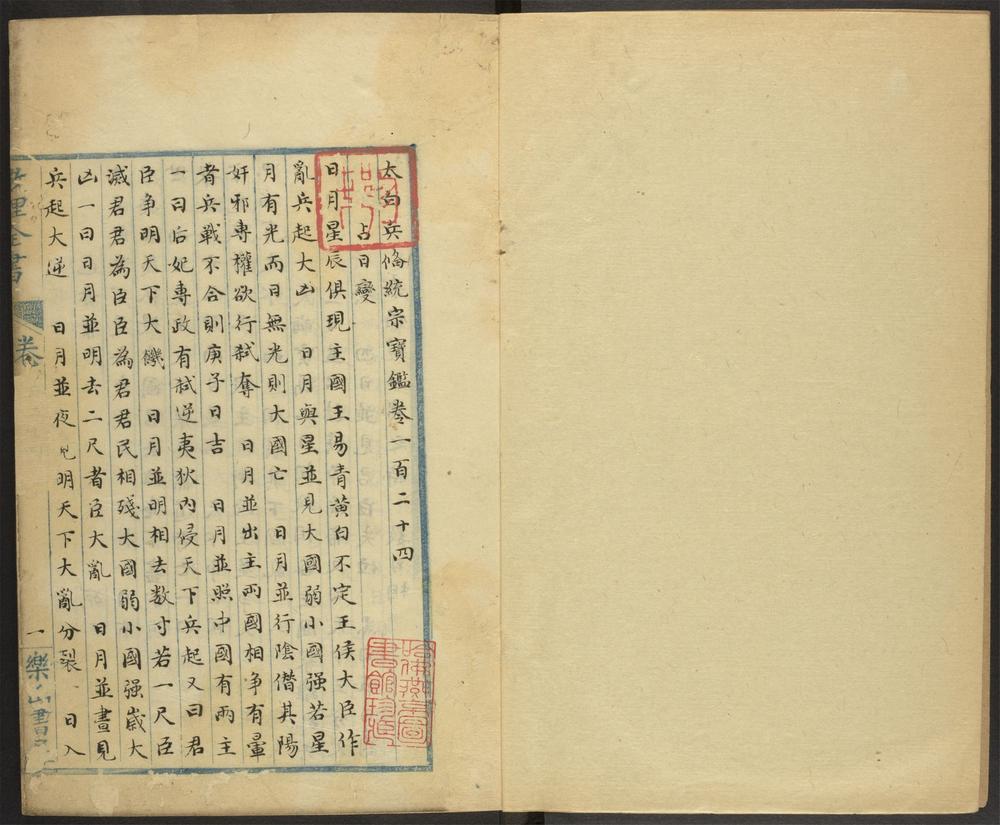 太白兵俻統宗寶鑑卷一百二十四
占日變
日月星辰俱現主國王易青黄白不定王侯大臣作
亂兵起大凶 日月與星並見大國弱小國强若星
月有光而日無光則大國亡 日月並行陰僣其陽
奸邪專權欲行弑奪 日月並出主兩國相争有暈
者兵戰不合則庚子日吉 日月並照中國有兩主
一曰后妃專政有弑逆夷狄内侵天下兵起又曰君
臣争明天下大饑 日月並明相去数寸若一尺臣
滅君君為臣臣為君君民相殘大國弱小國强歲大
凶一曰日月並明去二尺者臣大亂 日月並晝見
兵起大逆 日月並夜見明天下大亂分裂 日入
理全書
卷
一
樂山書
哈佛燕京圖
書館珍藏